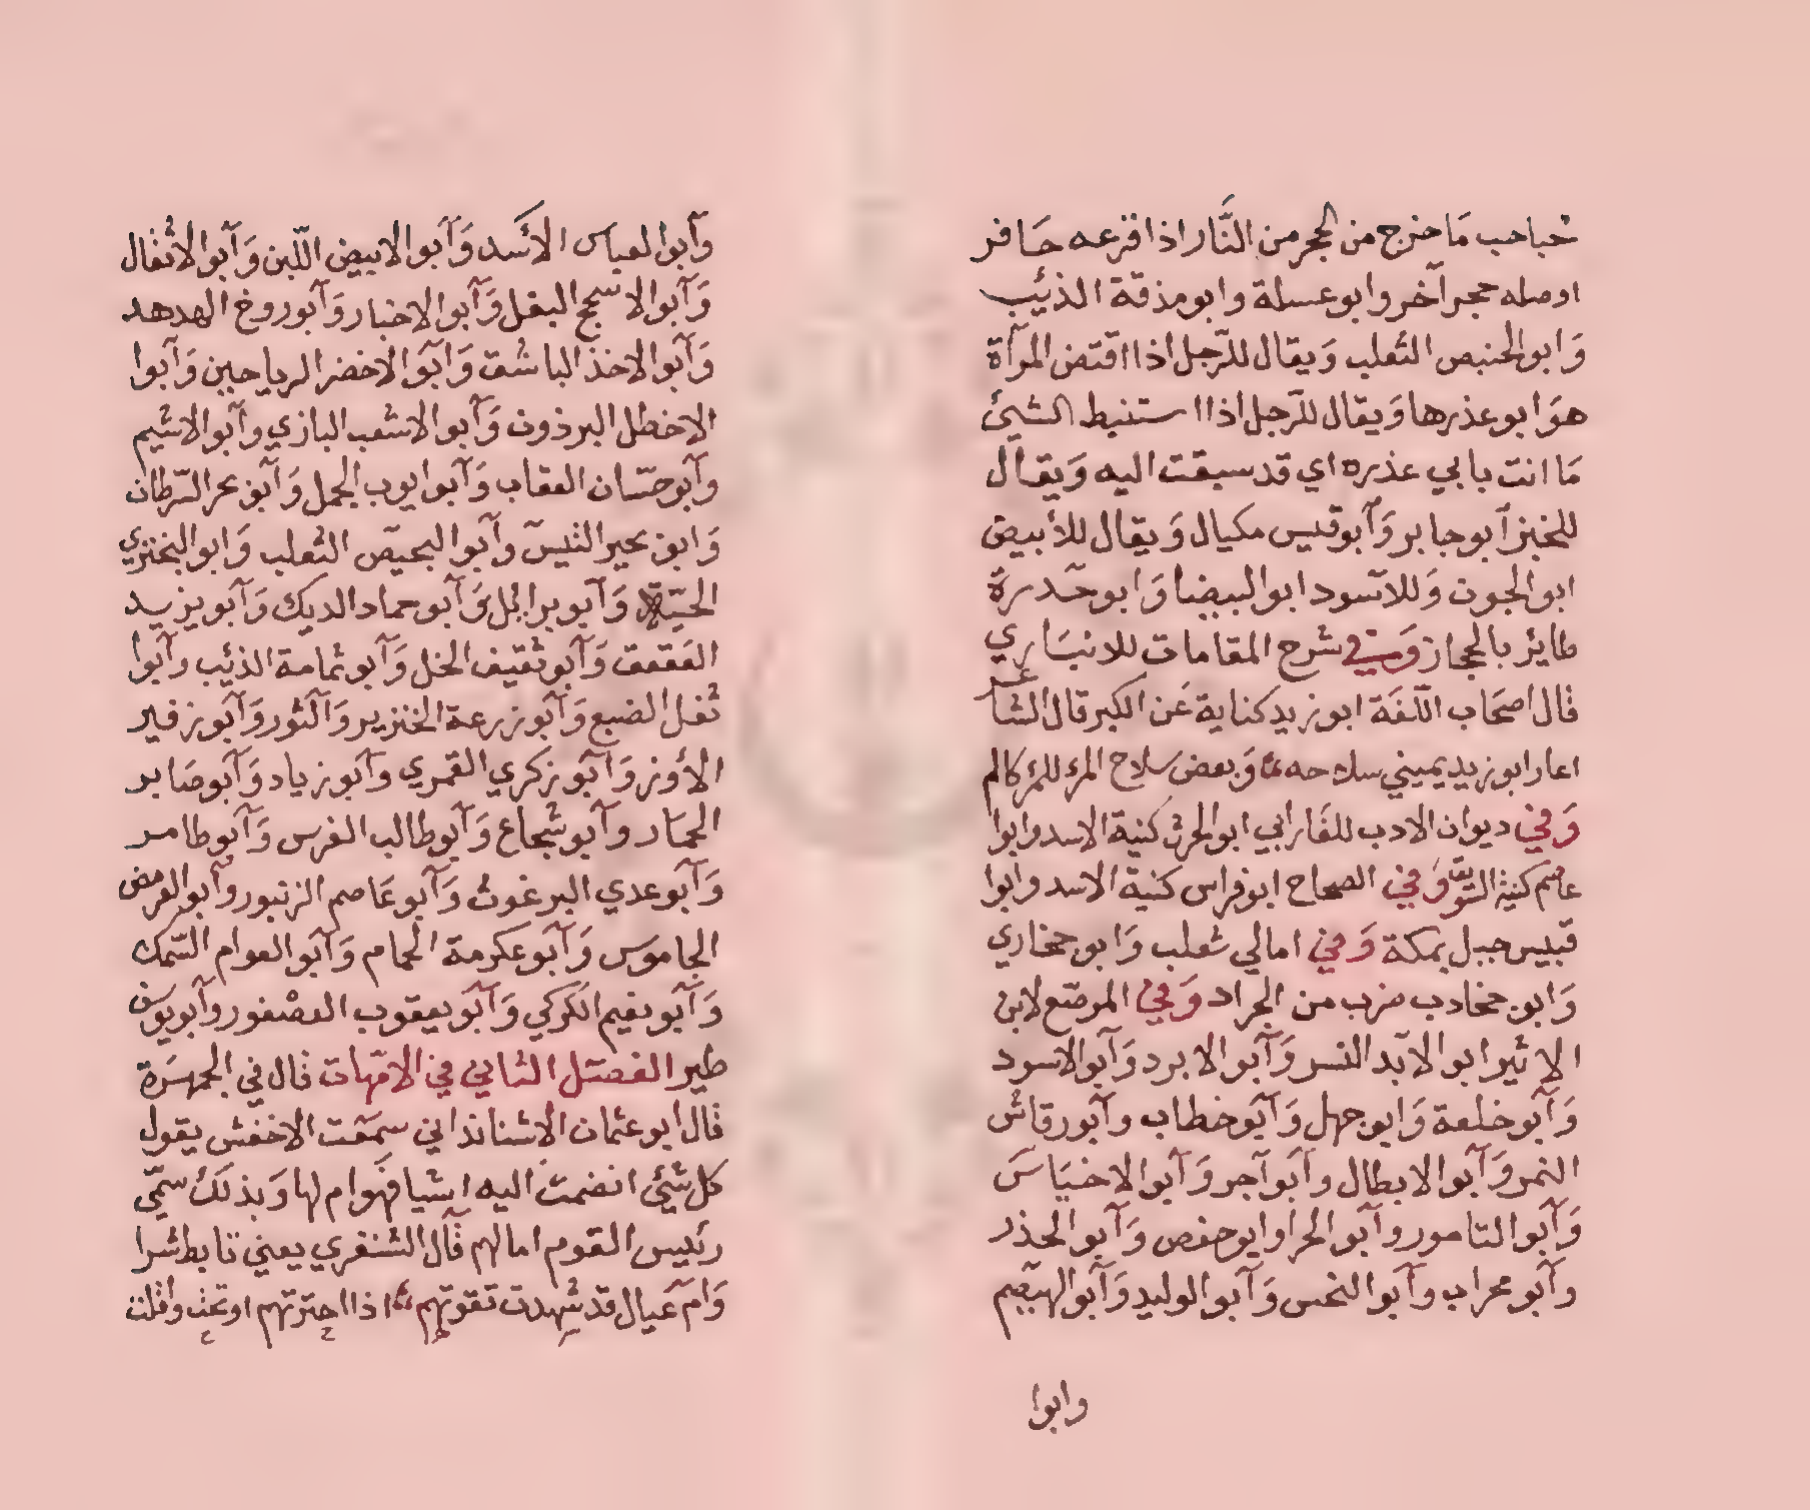 حباحب مَا خرج من الحجر من النَّار اذا قرعه حَافر
اوصله حجر آخر وابو عسلة وابو مذقة الذئيب
وَابو الحنبص الثعلب وَيقال للرّجل اذا اقتض المرآة
هوَ ابو عذرها وَيقال للرّجل اذا استنبط الشيئ
مَا انت بابي عذره اي قد سبقت اليه وَيقال
للخبز آبو جابر وَآبو قيس مكيال وَيقال للأبيض
ابو الجون وَللآسود ابو البيضا وَابو حَدرة
طايئر بالحجاز وَفي شرح المقامات للانبَاري
قال اصحَاب اللّغَة ابو زيد كناية عَن الكبر قال الشاعر
اعار ابو زيد يميني سلاحه وَبعض سلاح المرء للمرء كالم
وَفي ديوان الادب للفَارابي ابو الحرث كنية الاسد وابوا
عاصم كنية السَّوِيق وَفي الصحاح ابو فراس كنية الاسد وابوا
قبيس جبل بمكة وَفي امالي ثعلب وَابو جخاري
وَابو جخادب ضرب من الجراد وَفي المرصّع لابن
الاثير ابو الآبد النسر وَآبو الابرد وَآبو الاسود
وَآبو خلعة وَابو جهل وَآبو خطاب وآبو رقاش
النمر وَآبو الابطال وآبو آجر وَآبو الاخيَاسَ
وَآبو التامور وآبو الحرا وابو حفص وَآبو الحذر
وآبو محراب وآبو النحس وَآبو الوليد وَآبو الهيصم
وابوا
وآبوا لعباس الأسَد وَآبو الابيض اللّبن وَآبو الاثقال
وَآبو الاسحج البغل وَآبو الاخبار وَآبو روخ الهدهد
وَآبو الاخذ الباشُق وَآبو الاخضر الرياحين وَآبوا
الاخطل البرذون وَآبو الاشعب البازي وآبو الاشيم
وآبو حسّان العقاب وَآبو ايوب الجمل وَآبو بحر السّرطان
وَابو بحير التيسّ وآبو البحيصّ الثعلب وَابو البختري
الحيّة وَآبو برابل وَآبو حماد الديك وَآبو يزيد
العَقعق وَآبو ثقيف الخل وَآبو ثمامة الذئب وآبوا
ثغل الضبع وَآبو زرعة الخنزير وَالثور وَآبو زفير
الأوز وَآبو زكري القمري وآبو زياد وَآبو صَابر
الحمَار وآبو شجاع وَآبو طالب الفرس وَآبو طامر
وَآبو عدي البرغوث وَآبو عَاصم الزنبور وآبو العرمض
الجاموَس وَآبو عكرمة الحمام وَآبو العوام السّمك
وَآبو نعيم الكركي وَآبو يعقوب العصْفور وآبو يوسف
طير الفصّل الثاني في الامّهات قال في الجمهرَة
قال ابو عثمان الأشنانذاني سمَعت الاخفش يقول
كل شيئ انضمت اليه اشيا فَهوام لها وَبذلَك سمّي
رئيس القوم اما لهم قآل الشنفري يعني تابط شرا
وَامّ عَيال قد شُهدت تقوتهم اذا احترتهم اوتحت واقلت